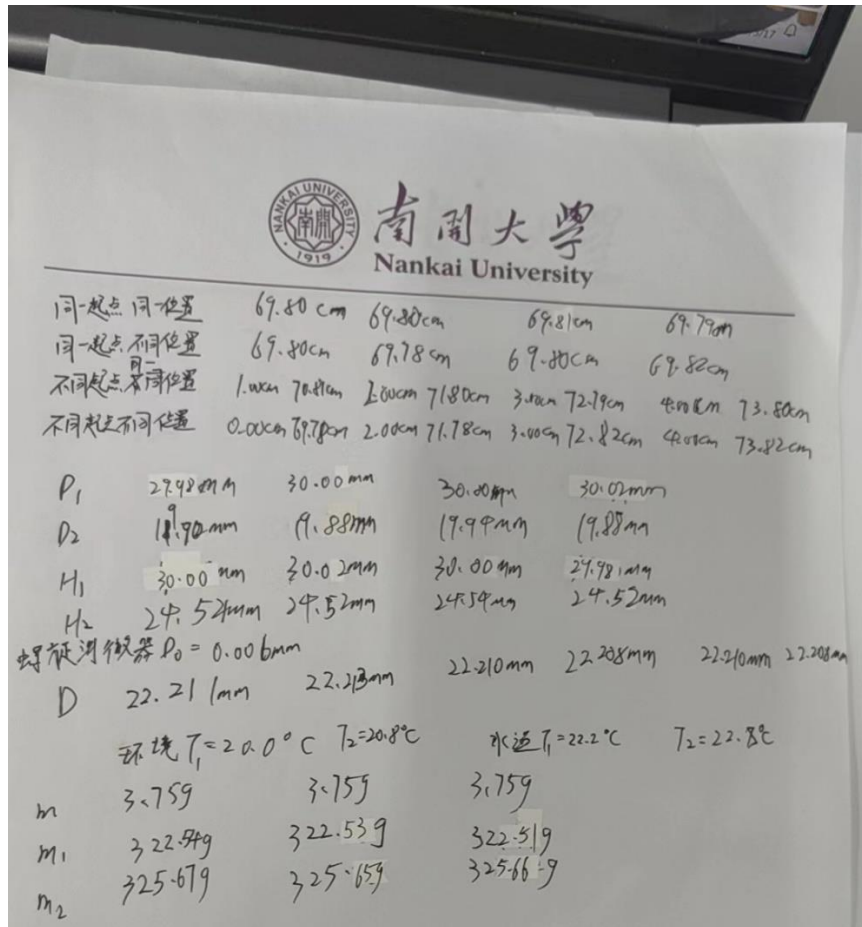 NANKAI UNIVERSITY
南開
1919
南開大學
Nankai University
同一起点 同一位置 69.80cm 69.80cm 69.81cm 69.79cm
同一起点不同位置 69.80cm 69.78cm 69.80cm 69.82cm
不同起点同一位置 1.00cm 70.81cm 2.00cm 71.80cm 3.00cm 72.79cm 4.00cm 73.80cm
不同起点不同位置 0.00cm 69.78cm 2.00cm 71.78cm 3.00cm 72.82cm 4.00cm 73.82cm
D₁ 29.98mm 30.00mm 30.00mm 30.02mm
D₂ 19.90mm 19.88mm 19.94mm 19.88mm
H₁ 30.00mm 30.02mm 30.00mm 29.98mm
H₂ 24.52mm 24.52mm 24.54mm 24.52mm
螺旋测微器 D₀=0.006mm
D 22.211mm 22.213mm 22.210mm 22.208mm 22.210mm 22.208mm
环境T₁=20.0°C T₂=20.8°C 水温T₁=22.2°C T₂=22.8°C
m 3.75g 3.75g 3.75g
m₁ 322.54g 322.53g 322.51g
m₂ 325.67g 325.65g 325.66g